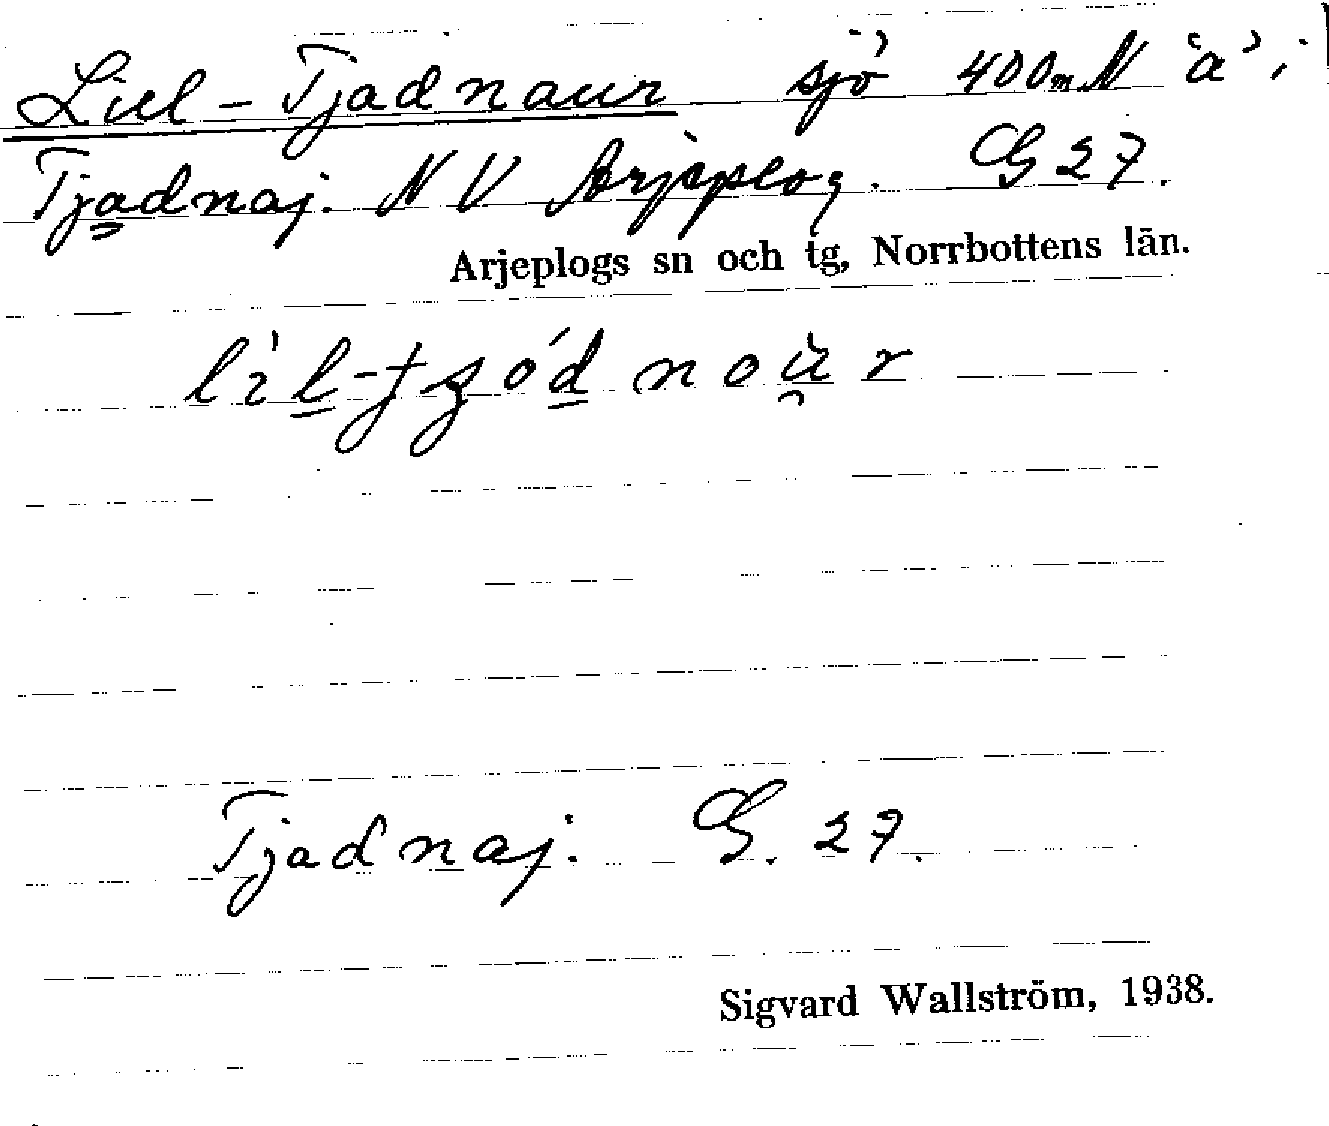 Liel-Tjadnaur sjö 400m N 'a' i
Tjadnaj. NV Arjeplog. G 27.
Arjeplogs sn och tg, Norrbottens län.
Tjadnaj. G. 27.
Sigvard Wallström, 1938.